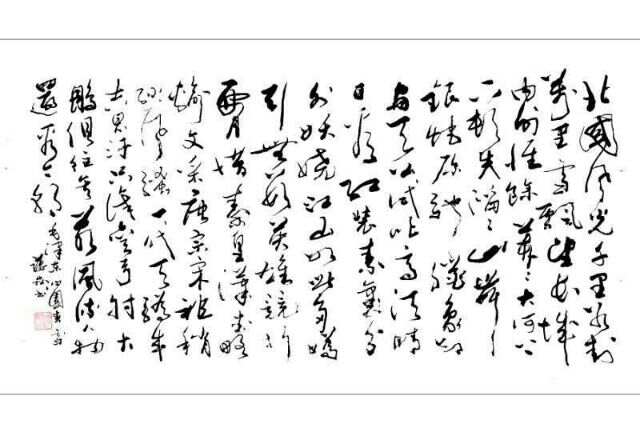 北國風光千里冰封
萬里雪飄望長城
內外惟餘莽莽大河上
下頓失滔滔山舞
銀蛇原馳蠟象欲
與天公試比高須晴
日看紅裝素裹分
外妖嬈江山如此多嬌
引無數英雄競折
腰惜秦皇漢武略
輸文采唐宗宋祖稍
遜風騷一代天驕成
吉思汗只識彎弓射大
鵰俱往矣數風流人物
還看今朝
毛澤東沁園春雪
書